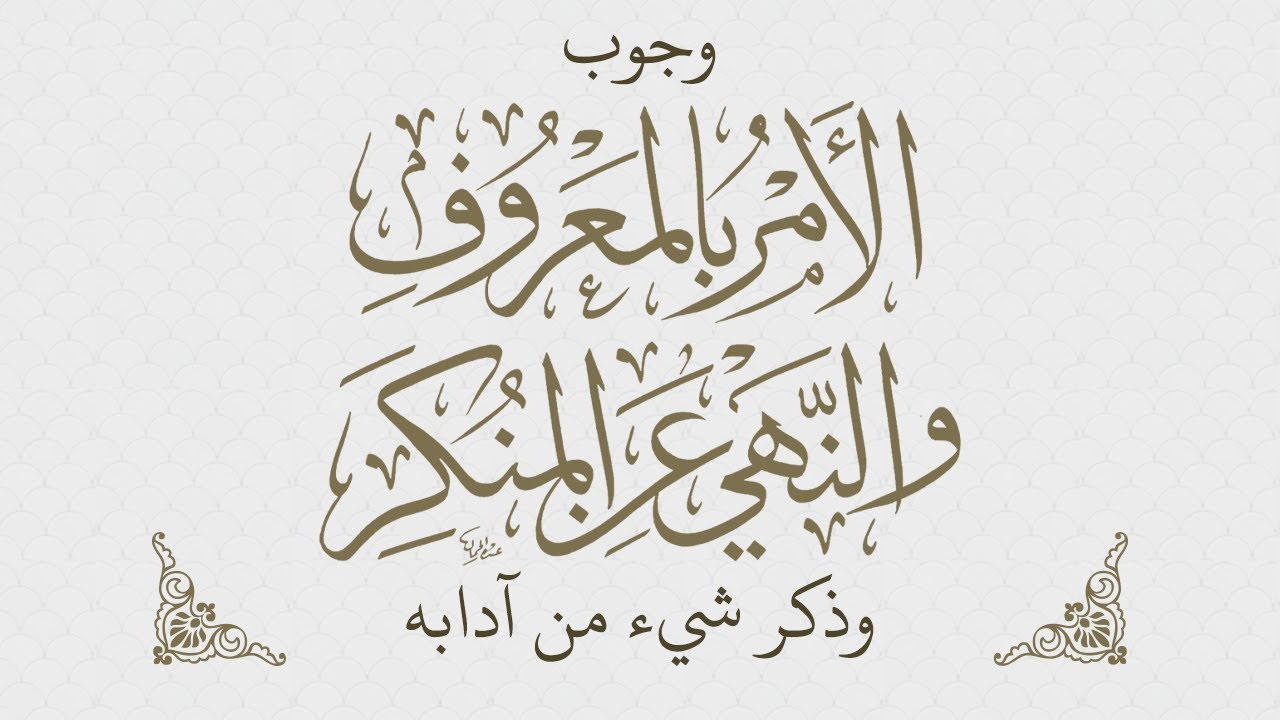 وجوب
الأَمْرُ بِالْمَعْرُوفِ
والنَّهْيِ عَنِ الْمُنْكَرِ
وذكر شيء من آدابه